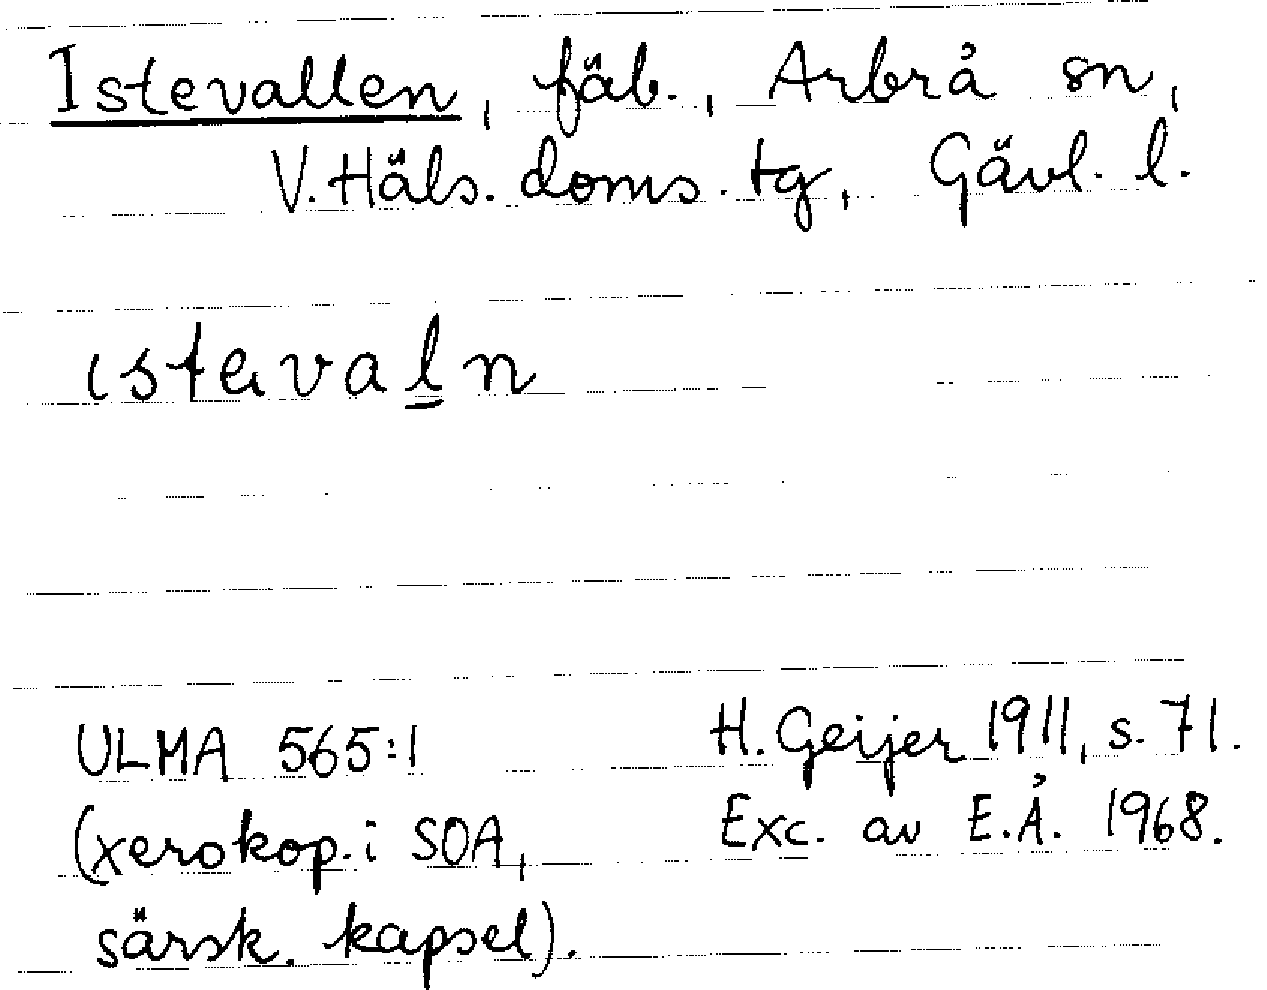 Istevallen, fäb., Arbrå sn,
V. Häls. doms. tg, Gävl. l.
ıstaval̲n
ULMA 565:1
(xerokop. i SOA,
särsk. kapsel).
H. Geijer 1911, s. 71.
Exc. av E.Å. 1968.